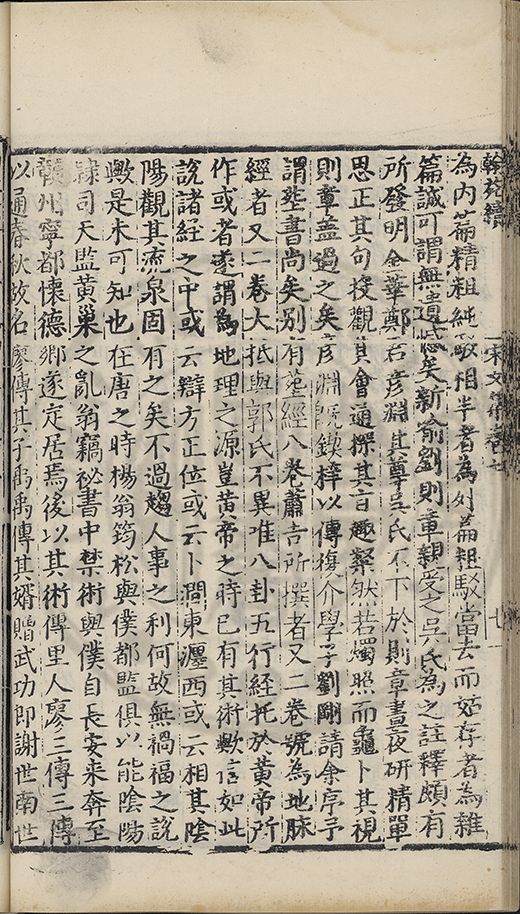 翰苑續 宋文集卷七 七
為内篇精粗純駁相半者為外篇粗駁當去而姑存者為雜
篇誠可謂無遺憾矣新喻劉則章親受之吳氏為之註釋頗有
所發明金華鄭君彥淵其尊吳氏不下於則章晝夜研精單
思正其句投觀其會通探其旨趣粲然若燭照而龜卜其視
則章蓋過之矣彥淵既鍥梓以傳復介學子劉剛請余序予
謂葬書尚矣別有葬經八卷蕭吉所撰者又二卷號為地脉
經者又二卷大抵與郭氏不異唯八卦五行經托於黃帝所
作或者遂謂為地理之源豈黃帝之時已有其術歟信如此
說諸經之中或云辯方正位或云卜澗東瀍西或云相其陰
陽觀其流泉固有之矣不過趨人事之利何故無禍福之說
歟是未可知也在唐之時楊翁筠松與僕都監俱以能陰陽
隸司天監黃巢之亂翁竊祕書中禁術與僕自長安来奔至
贛州寧都懷德鄉遂定居焉後以其術傳里人廖三傳三傳
以通春秋故名廖傳其子禹禹傳其婿贈武功郎謝世南世